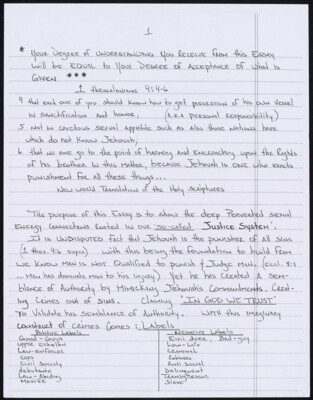 1
* Your Degree of Understanding You Receive from this Essay
will be Equal to Your Degree of Acceptance of what is
Given. ***
1 Thessalonians 4:4-6
4 that each one of you should know how to get possession of his own vessel
in sanctification and honor, (A.K.A personal responsibility)
5 not in covetous sexual appetite such as also those nations have
which do not know Jehovah;
6 that no one go to the point of harming and encroaching upon the Rights
of his brother in this matter, because Jehovah is one who exacts
punishment for all these things...
New World Translation of the Holy Scriptures
The purpose of this Essay is to show the deep Perverted sexual
Energy connections rooted in our 'so-called' Justice System'.
It is undisputed fact that Jehovah is the punisher of all sins
(1 Thes. 4:6 supra) with this being the foundation to build from
we know Man is not Qualified to punish & Judge Man, (Eccl. 8:9
... Man has dominate Man to his injury) Yet he has created a Sem-
blance of Authority by Mimicking Jehovah's Commandments. Creat-
ing Crimes out of Sins. Claiming 'IN GOD WE TRUST'
To Validate his Semblance of Authority. With this Imaginary
construct of crimes comes: Labels
Positive Labels
Good-Guys
Upper Echelon
Law-Enforcer
Cops
Civil Society
debutante
Law-Abiding
Master
Negative Labels
Evil doer, Bad-guy
Low-Life
Criminal
Robbers
Anti social
Delinquent
Transgressor
Slave